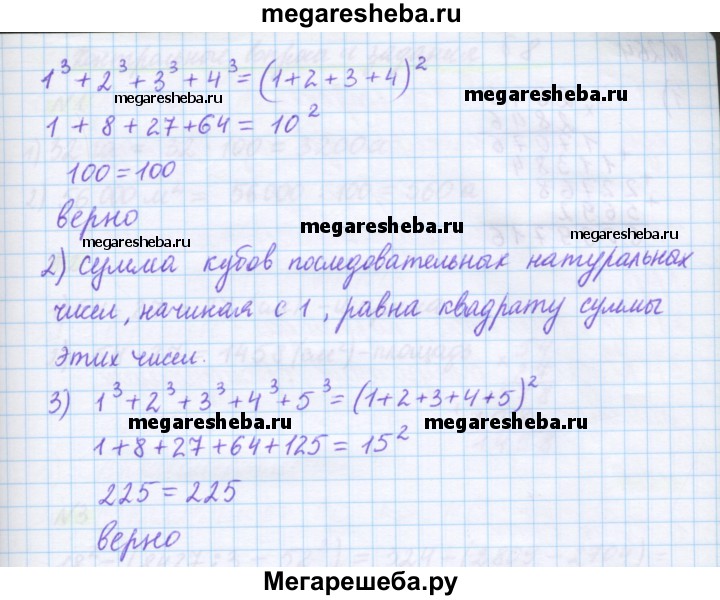 megaresheba.ru
1³ + 2³ + 3³ + 4³ = (1 + 2 + 3 + 4)²
megaresheba.ru megaresheba.ru
1 + 8 + 27 + 64 = 10²
100 = 100
верно
megaresheba.ru megaresheba.ru megaresheba.ru
2) сумма кубов последовательных натуральных
чисел, начиная с 1, равна квадрату суммы
этих чисел.
3) 1³ + 2³ + 3³ + 4³ + 5³ = (1 + 2 + 3 + 4 + 5)²
megaresheba.ru megaresheba.ru
1 + 8 + 27 + 64 + 125 = 15²
225 = 225
верно
Мегарешеба.ру